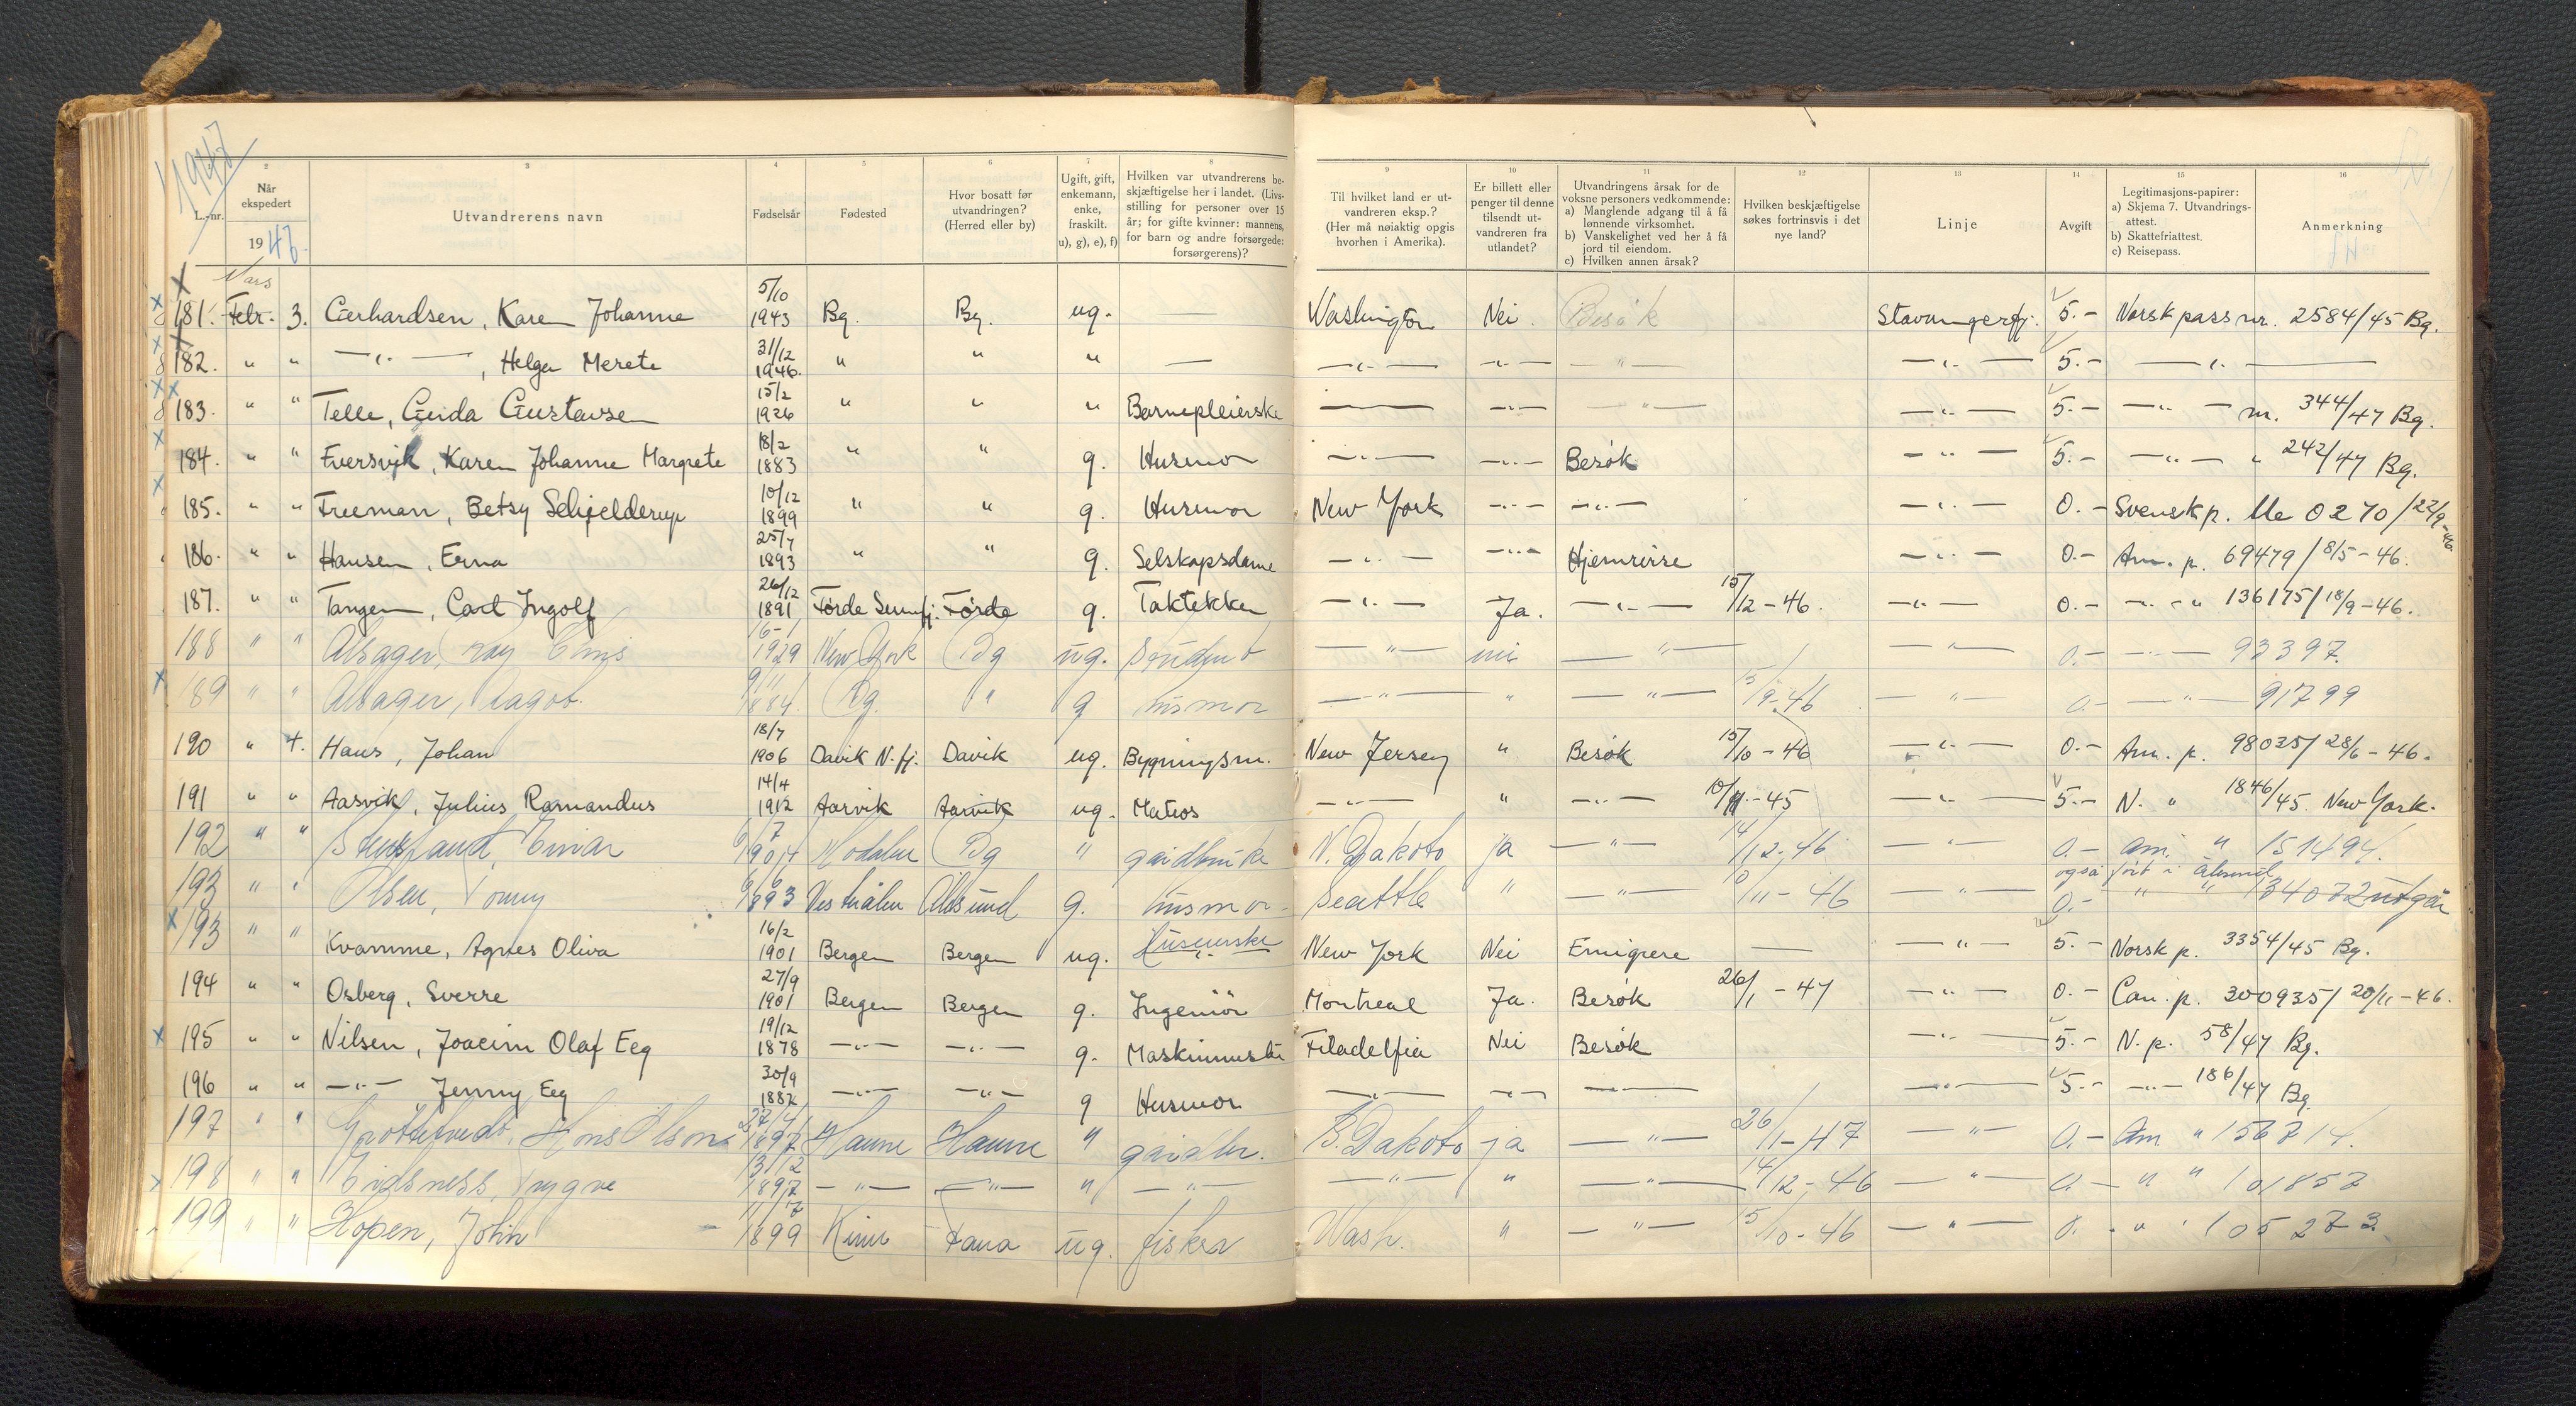 1947
L.-nr.
2 Når ekspedert 1947.
3 Utvandrerens navn
4 Fødselsår
5 Fødested
6 Hvor bosatt før utvandringen? (Herred eller by)
7 Ugift, gift, enkemann, enke, fraskilt. u), g), e), f)
8 Hvilken var utvandrerens beskjæftigelse her i landet. (Livsstilling for personer over 15 år; for gifte kvinner: mannens, for barn og andre forsørgede: forsørgerens)?
9 Til hvilket land er utvandreren eksp.? (Her må nøiaktig opgis hvorhen i Amerika).
10 Er billett eller penger til denne tilsendt utvandreren fra utlandet?
11 Utvandringens årsak for de voksne personers vedkommende: a) Manglende adgang til å få lønnende virksomhet. b) Vanskelighet ved her å få jord til eiendom. c) Hvilken annen årsak?
12 Hvilken beskjæftigelse søkes fortrinsvis i det nye land?
13 Linje
14 Avgift
15 Legitimasjons-papirer: a) Skjema 7. Utvandringsattest. b) Skattefriattest. c) Reisepass.
16 Anmerkning
Mars
181. Febr. 3. Gerhardsen, Karen Johanne 5/10 1943 Bg. Bg. ug. — Washington Nei. Besøk Stavangerfj. 5.- Norsk pass nr. 2584/45 Bg.
182. " " —"—, Helga Merete 31/12 1946. " " " — —"— —"— —"— —"— 5.- —"—
183. " " Telle, Guida Gustavse 15/2 1926 " " " Barnepleierske —— —"— —"— —"— 5.- —"— nr. 344/47 Bg.
184. " " Eversvik, Karen Johanne Margrete 18/2 1883 " " g. Husmor —"— —"— Besøk —"— 5.- —"— " 242/47 Bg.
185. " " Freeman, Betsy Schjelderup 10/12 1899 " " g. Husmor New York —"— —"— —"— 0.- Svensk p. Ue 0270/22/9-46.
186. " " Hansen, Erna 25/7 1893 " " g. Selskapsdame —"— —"— Hjemreise —"— 0.- Am. p. 69479/8/5-46.
187. " " Tangen, Carl Ingolf 26/12 1891 Førde Sunnfj. Førde g. Taktekker —"— Ja. —"— 15/12-46. —"— 0.- —"— 136175/18/9-46.
188 " " Alsager, Ray 16-1 1929 New York Bg ug. student —"— nei —"— —"— 0.- —"— 93397.
189 " " Alsager, Ragob. 9/11 1884. Bg. " g husmor —"— " —"— 15/9-46 —"— 0.- —"— 91799
190 " 4. Haus, Johan 18/7 1906 Davik N.fj. Davik ug. Bygningsm. New Jersey " Besøk 15/10-46 —"— 0.- Am. p. 98035/28/6-46.
191 " " Aasvik, Julius Ramandus 14/4 1912 Aasvik Aasvik ug. Matros —"— " —"— 10/11-45 —"— 5.- N. " 1846/45 New York.
192 " " Einar 6/7 1904 Modalen Bg " gaardbruker N. Dakota ja —"— 14/12-46 —"— 0.- am. " 151494.
også ført i Ålesund
193 " " Olsen, Tonny 6/6 1893 Vesterålen Ålesund g. husmor Seattle " —"— 11-46 —"— 0.- " " 134072 utgår
193 " " Kvamme, Agnes Oliva 16/2 1901 Bergen Bergen ug. New York Nei Emigrere — —"— 5.- Norsk p. 3354/45 Bg.
194 " " Osberg, Sverre 27/9 1901 Bergen Bergen g. Ingeniør Montreal Ja. Besøk 26/1-47 —"— 0.- Can. p. 300935/20/11-46.
195 " " Nilsen, Joacim Olaf Eeg 19/12 1878 —"— —"— g. Maskinmester Filadelfia Nei Besøk —"— 5.- N. p. 58/47 Bg.
196 " " —"— Jenny Eeg 30/9 1882 —"— —"— g Husmor —"— —"— —"— —"— 5.- —"— 186/47 Bg.
197 " " 27/4 1897 Haune Haune " gaardbr. S. Dakota ja —"— 26/1-47 —"— 0.- Am. " 156714.
198 " " Eidsness, Trygve 13/12 1897 —"— —"— " —"— —"— " —"— 14/12-46 —"— 0.- " " 101857
199 " " Hopen, John 11/7 1899 Kinn Fana ug. fisker Wash. " —"— 15/10-46 —"— 0. - " " 105273